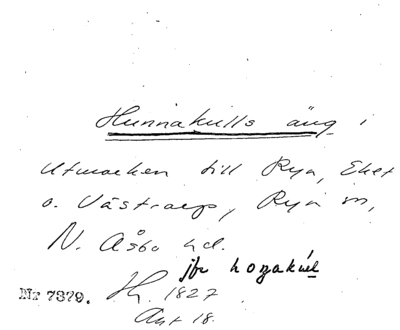 Hunnakulls äng i
utmarken till Rya, Eket
o. Västraryp, Rya sn,
N. Åsbo hd.
jfr
Nr 7379. 1827
Akt 18.